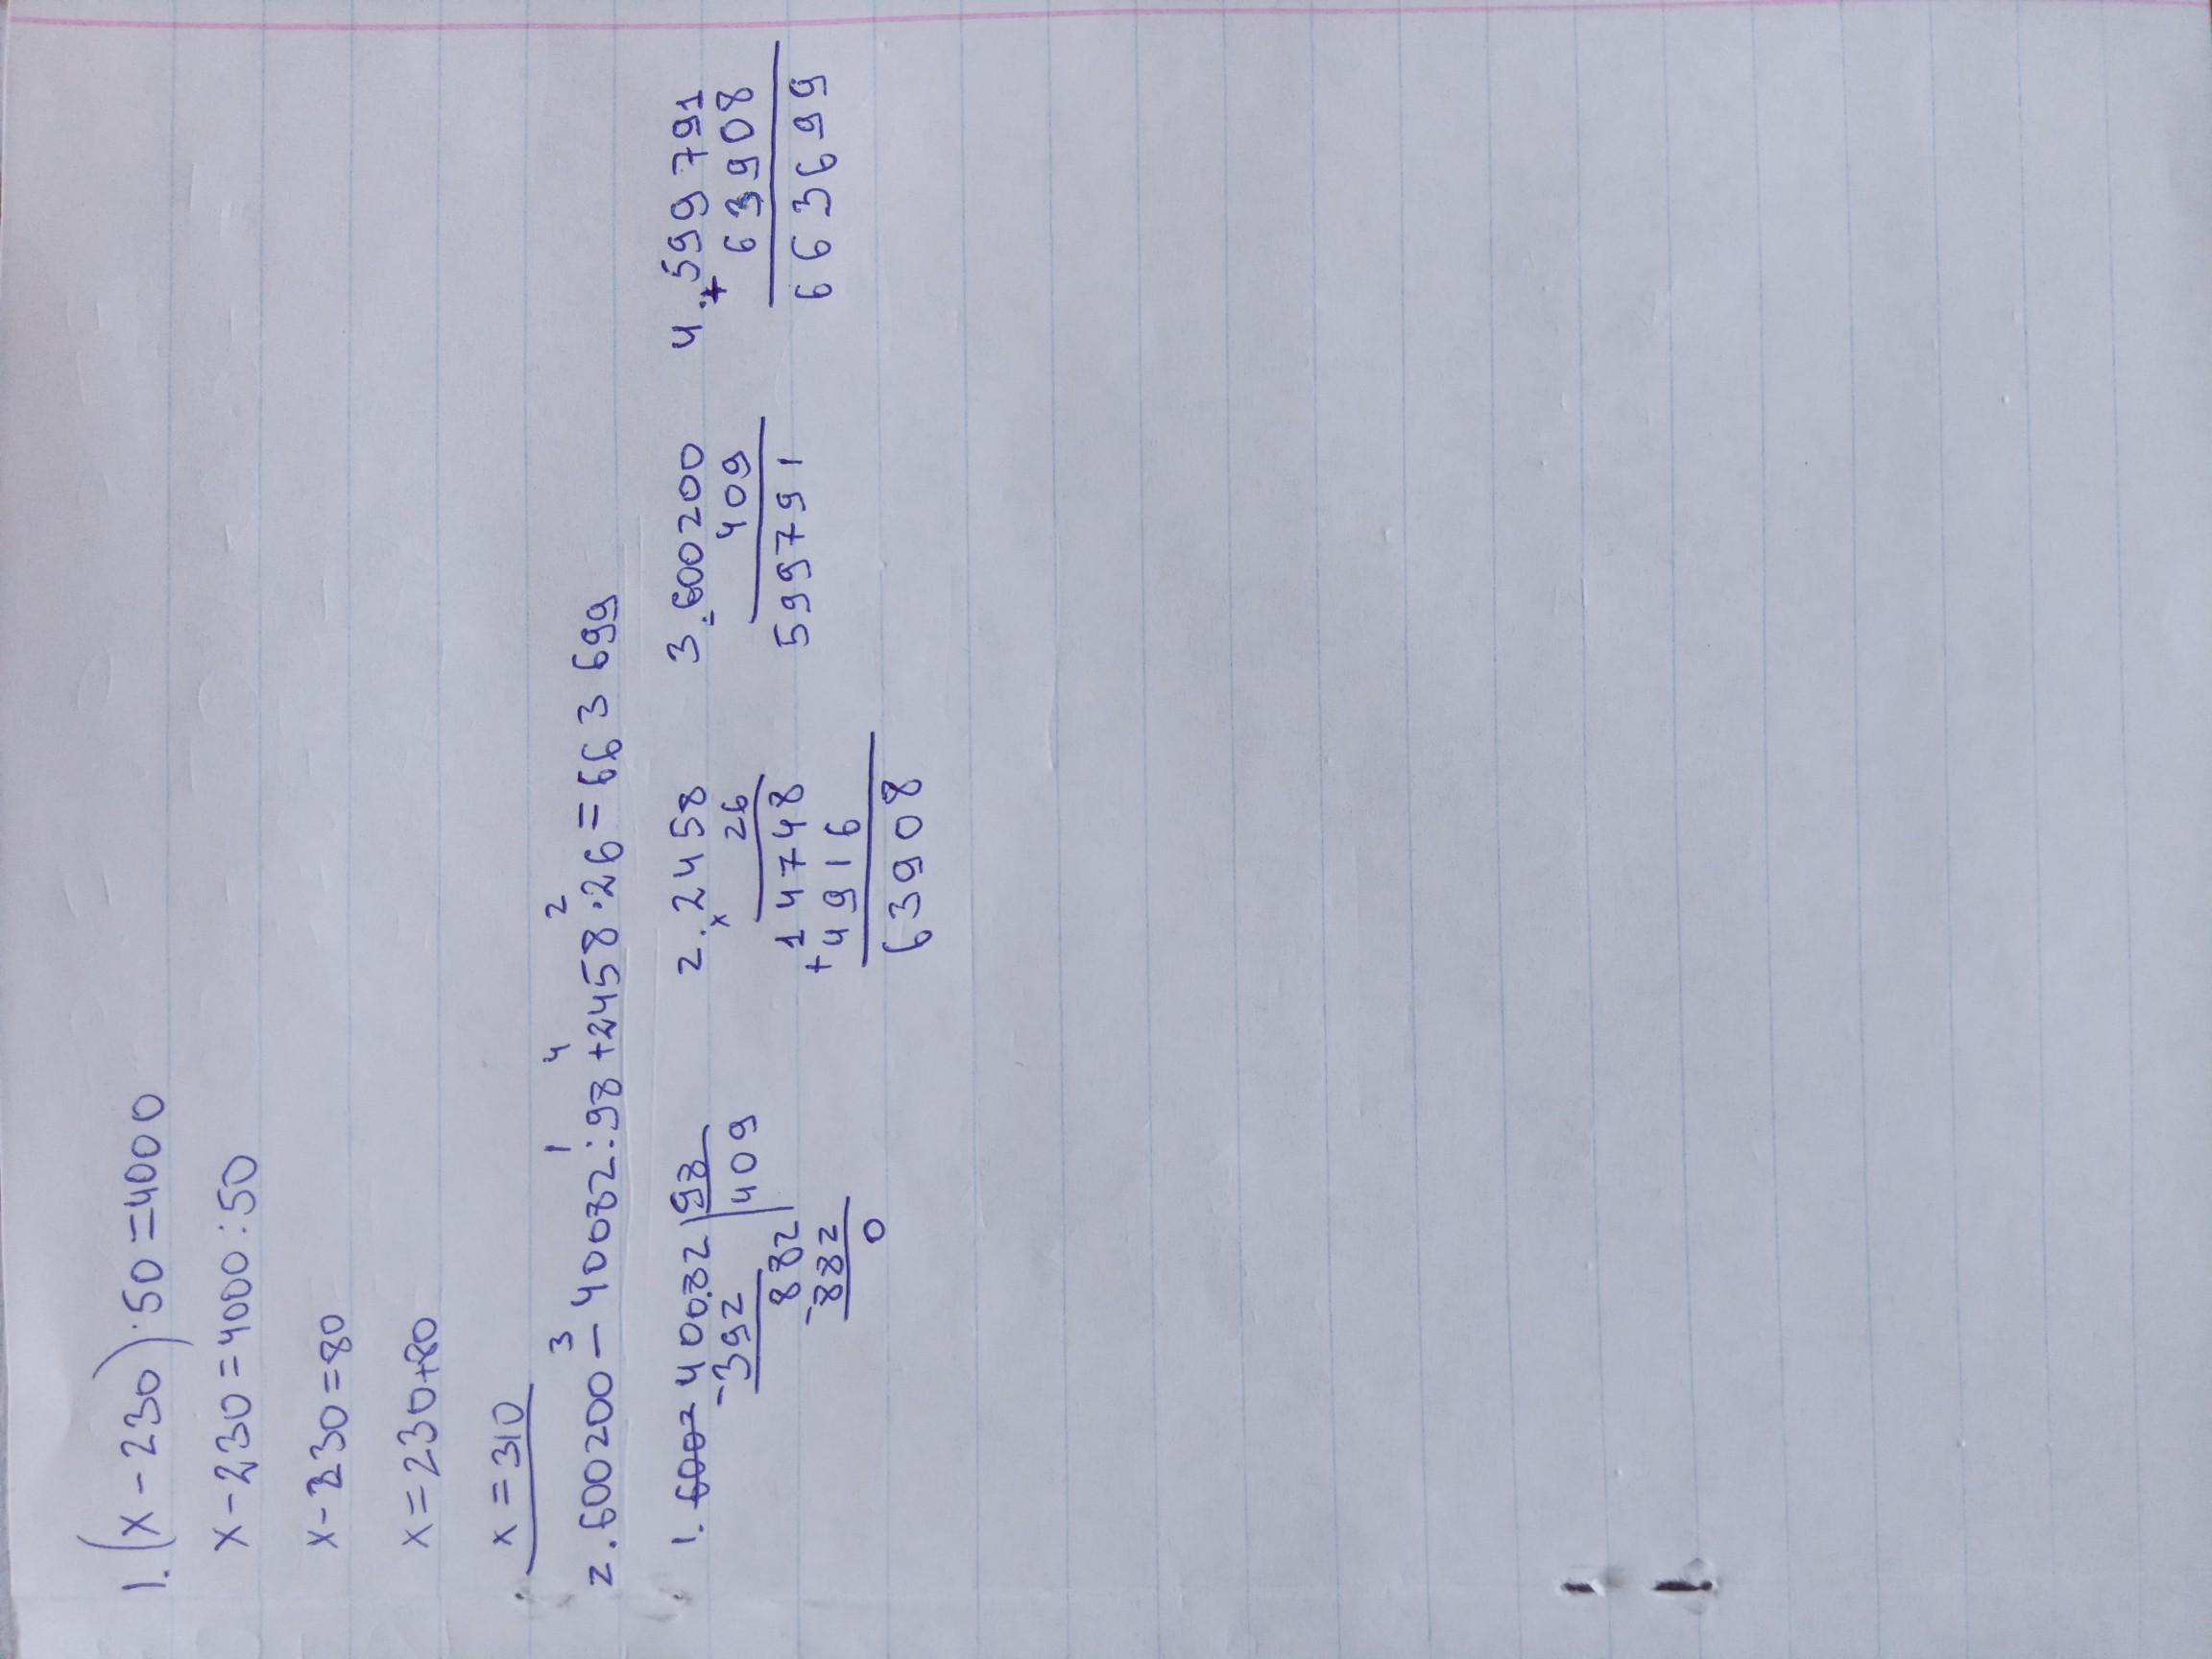 1. (x-230)·50=4000
x-230=4000:50
x-230=80
x=230+80
x=310
3 1 4 2
2. 600200-40082:98+2458·26=663699
1. 6002 40082 98
-392 409
882
-882
0
2. 2458
x 26
14748
+4916
63908
3. 600200
- 409
599791
4. 599791
+ 63908
663699